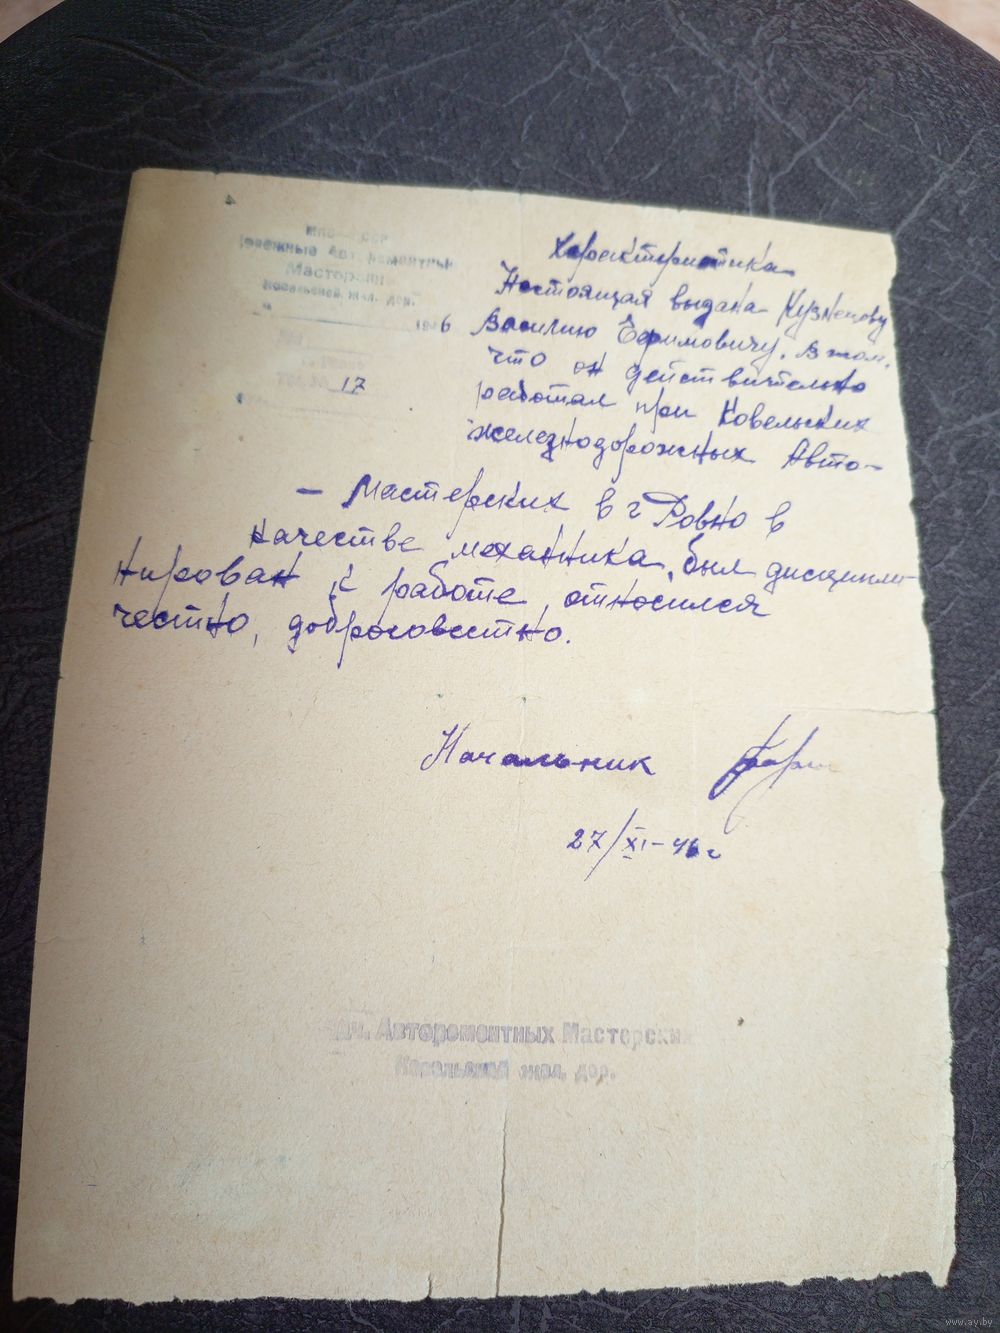 Авторементные
Мастерские
Ковельской жел. дор.
"
1946
17
Характеристика
Настоящая выдана Кузнецову
Василию Ефимовичу. В том,
что он действительно
работал при Ковельских
железнодорожных Авто-
- Мастерских в г Ровно в
качестве механика, был дисципли-
нирован, к работе, относился
честно, добросовестно.
Начальник
27/XI-46 г
Нач. Авторементных Мастерских
Ковельской жел. дор.
www.ay.by